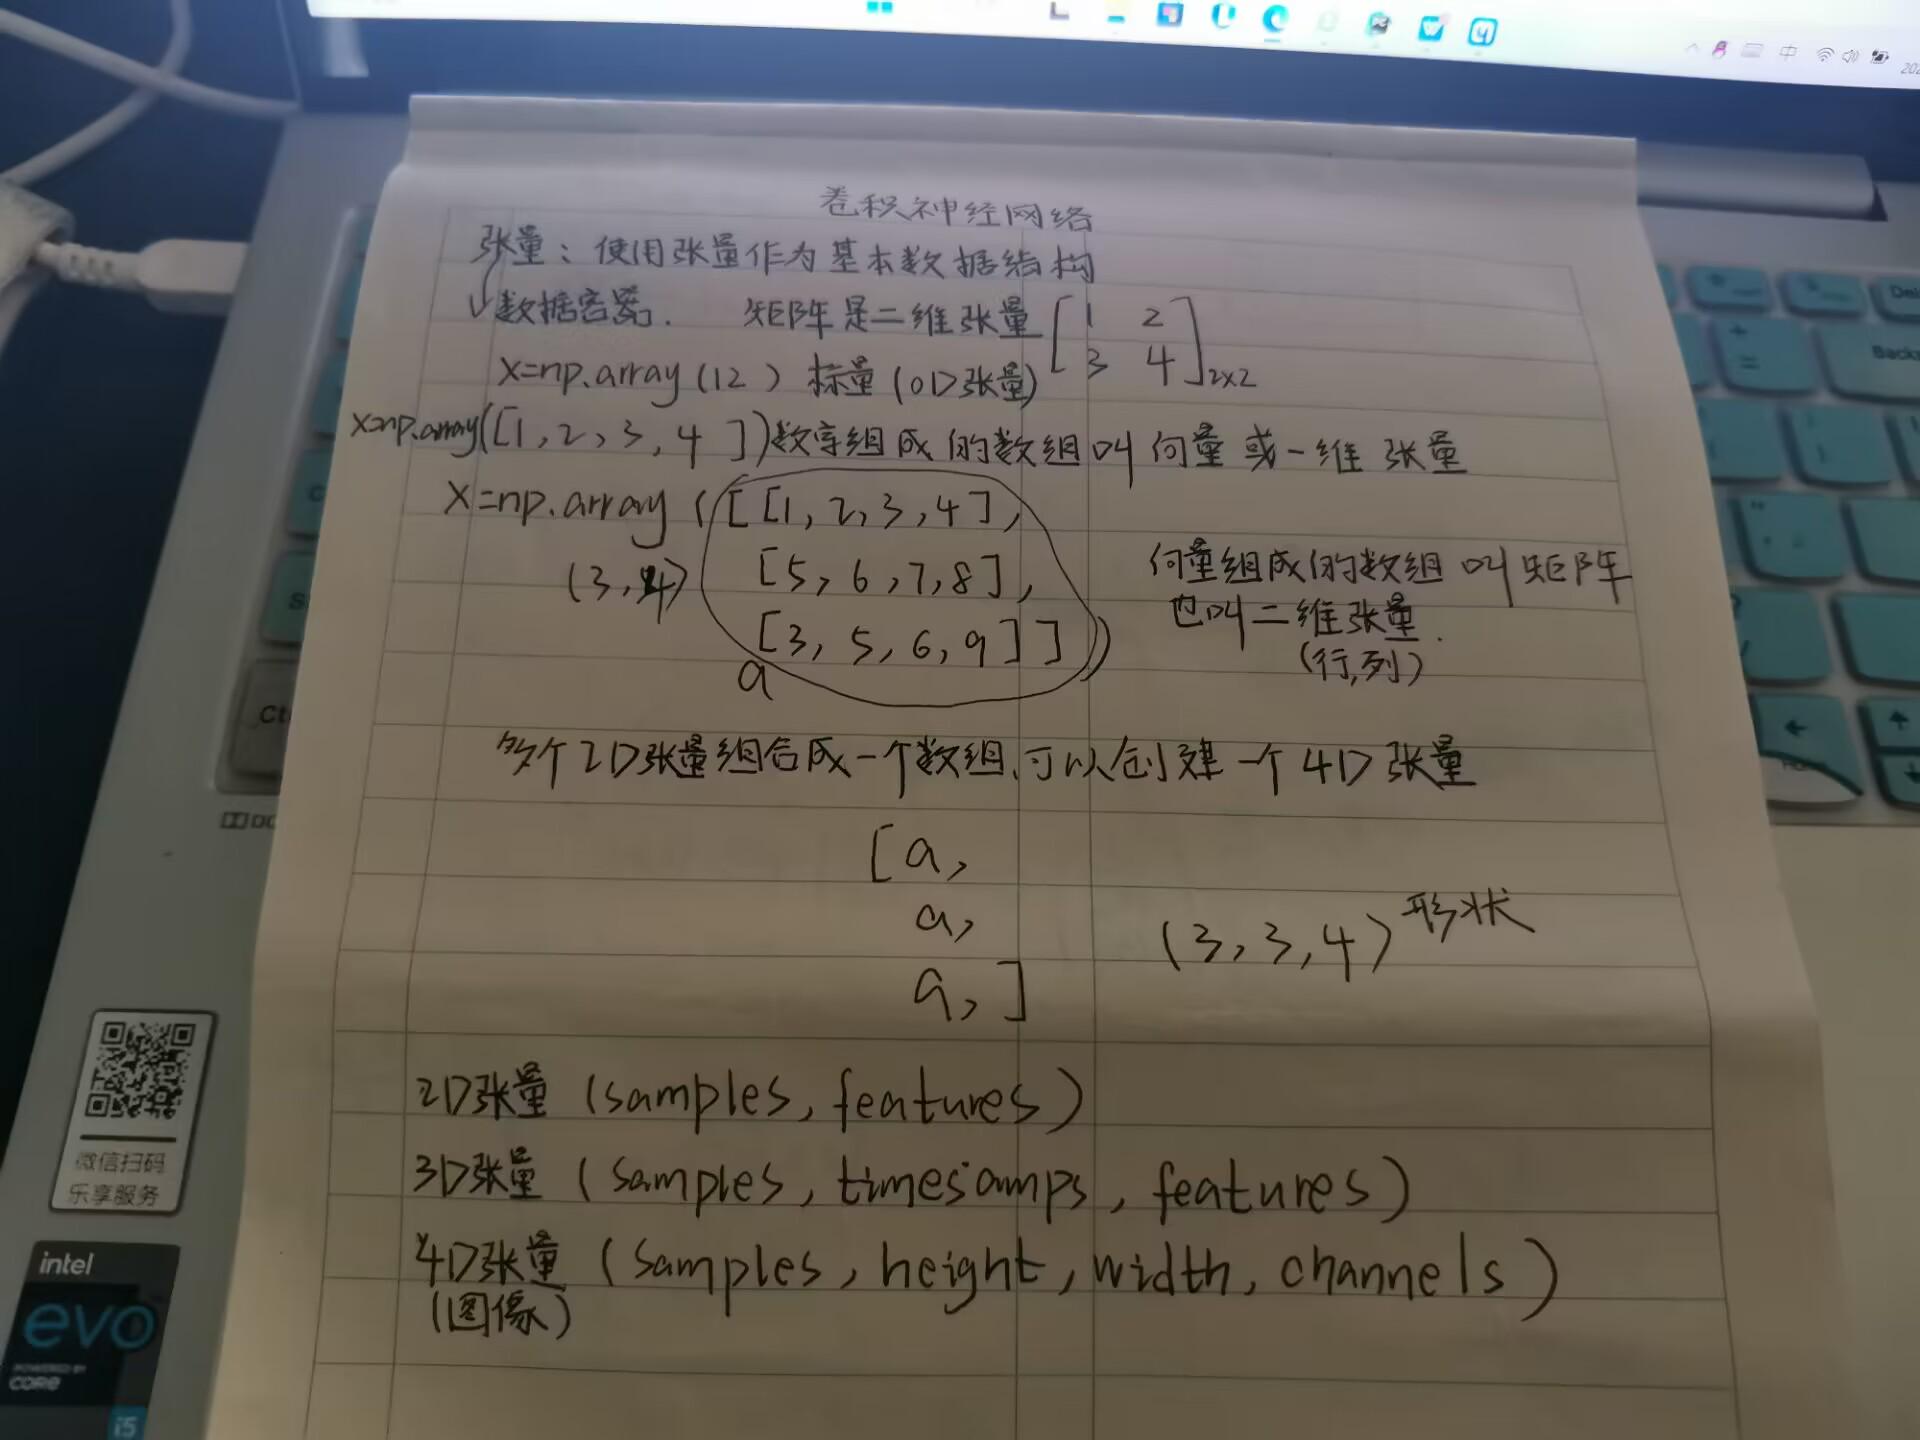 卷积神经网络
张量：使用张量作为基本数据结构
数据容器. 矩阵是二维张量 [1 2
3 4]2x2
x=np.array(12) 标量(0D张量)
x=np.array([1,2,3,4])数字组成的数组叫向量或一维张量
X=np.array([[1,2,3,4],
(3,4) [5,6,7,8],
[3,5,6,9]])
a
向量组成的数组叫矩阵
也叫二维张量.
(行,列)
多个2D张量组合成一个数组,可以创建一个4D张量
[a,
a,
a,]
(3,3,4)形状
2D张量(samples,features)
3D张量(samples,timesamps,features)
4D张量(samples,height,width,channels)
(图像)
微信扫码
乐享服务
intel
evo
POWERED BY
CORE
i5
Back
Del
Ct
中
202